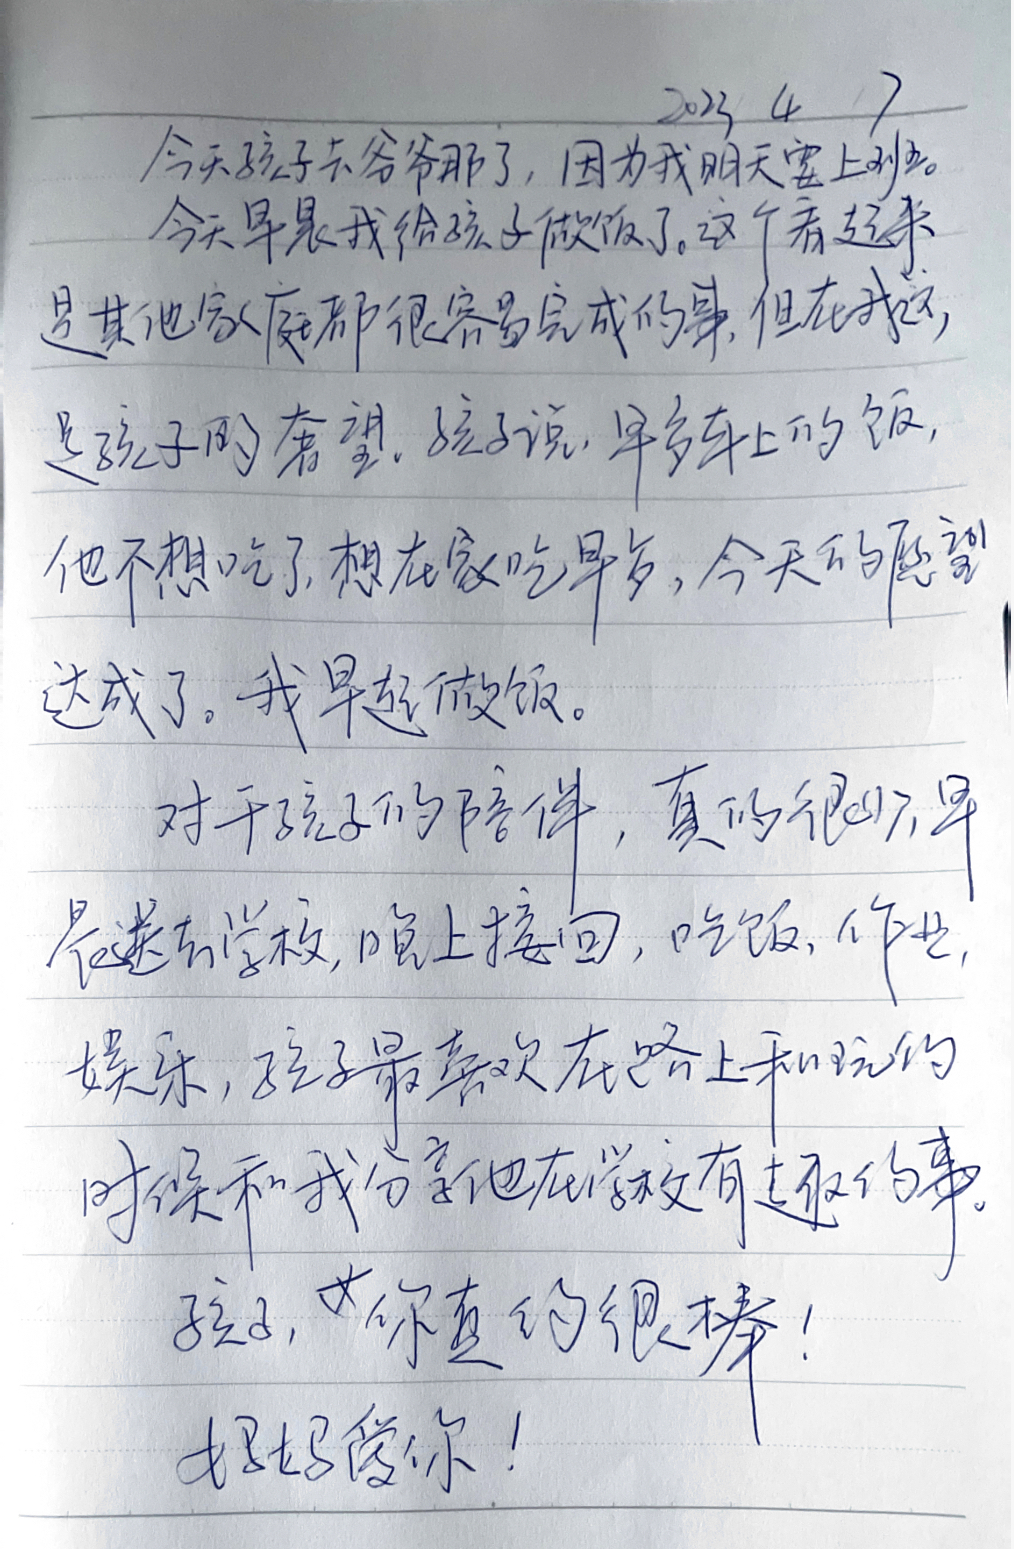 2023 4 7
今天孩子去爷爷那了，因为我明天要上班。
今天早晨我给孩子做饭了。这个看起来
是其他家庭都很容易完成的事，但在我这，
是孩子的奢望。孩子说，早多车上的饭，
他不想吃了，想在家吃早多，今天的愿望
达成了。我早起做饭。
对于孩子的陪伴，真的很少，早
晨送去学校，晚上接回，吃饭，作业，
娱乐，孩子最喜欢在路上和玩的
时候和我分享他在学校有趣的事。
孩子，你真的很棒！
妈妈爱你！